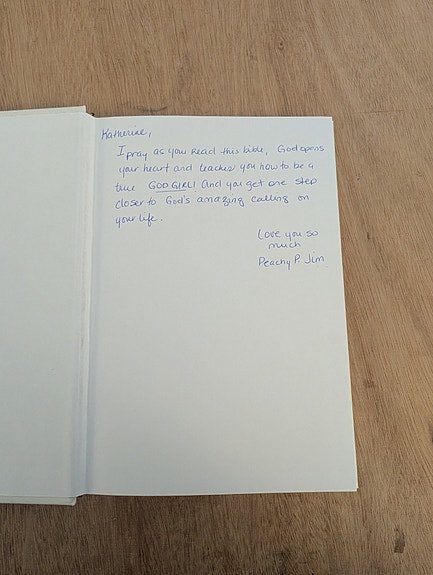 Katherine,
I pray as you Read this bible, God opens
your heart and teaches you how to be a
true GOD GIRL! And you get one step
closer to God's amazing calling on
your life.
Love you so
much
Peachy P. Jim